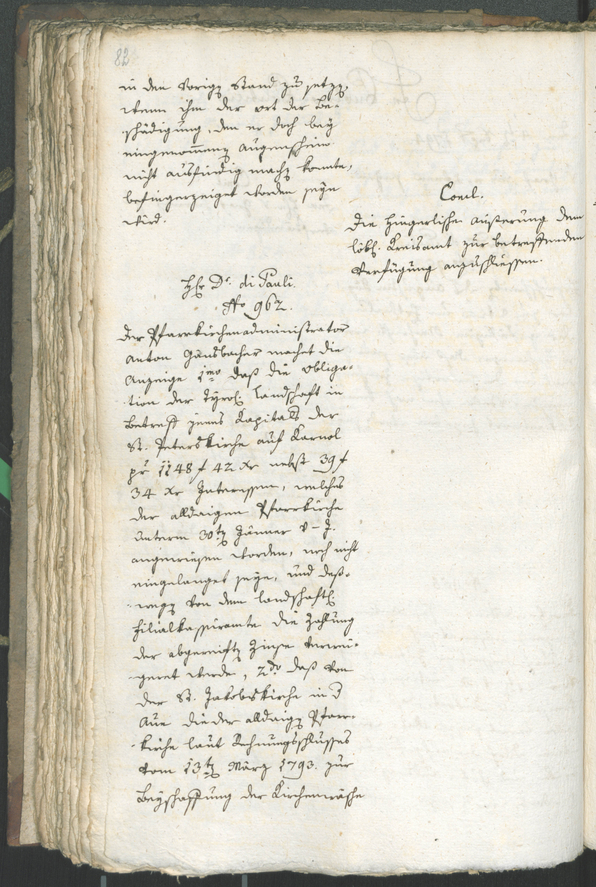 82
in den vorigen Stand zu setzen,
wenn ihm der Ort der Be-
schädigung, den er doch bey
eingenommenen Augenschein
nicht ausfindig machen konnte,
befingerzeiget worden seyn
wird.
Concl.
Die bürgerliche Äußerung dem
löbl. Kreisamt zur betreffenden
Verfügung anzuschließen.
Hr. Dr. di Pauli.
No 962.
Der Pfarrkirchenadministrator
Anton Gänsbacher machet die
Anzeige 1mo daß die Obliga-
tion der Tyrol. Landschaft in
Betreff jenes Kapitals der
St. Peterskirche auf Karnol
pr 1148 f 42 xr nebst 39 f
34 xr Interessen, welches
der alldaigen Pfarrkirche
unterm 30ten Jänner v. J.
angewiesen worden, noch nicht
eingelanget seye, und deß-
wegen von dem landschaftl.
Filialkassieramte die Zahlung
der abgereiften Zinse verwei-
geret werde, 2do daß von
der St. Jakobskirche in der
Aue die der alldaigen Pfarr-
kirche laut Rechnungsschlusses
vom 13ten März 1793. zur
Beyschaffung der Kirchenwäsche